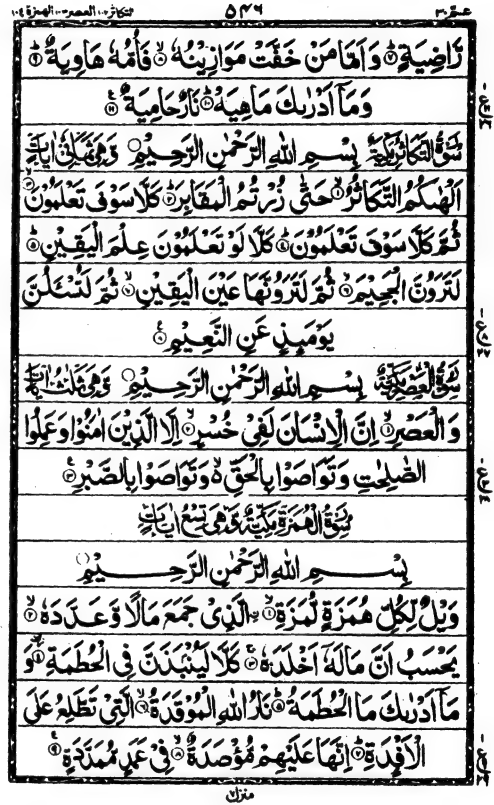 عمّ ٣٠ ٥٤٦ التكاثر ١٠٢ العصر ١٠٣ الهمزة ١٠٤
رَّاضِيَةٍ ۝٧ وَاَمَّا مَنْ خَفَّتْ مَوَازِيْنُهٗ ۝٨ فَاُمُّهٗ هَاوِيَةٌ ۝٩
وَمَاۤ اَدْرٰىكَ مَاهِيَهْ ۝١٠ نَارٌ حَامِيَةٌ ۝١١
سُوْرَةُ التَّكَاثُرِ مَكِّيَّةٌ بِسْمِ اللّٰهِ الرَّحْمٰنِ الرَّحِيْمِ ۝ وَّهِيَ ثَمَانِيْ اٰيَاتٍ
اَلْهٰىكُمُ التَّكَاثُرُ ۝١ حَتّٰى زُرْتُمُ الْمَقَابِرَ ۝٢ كَلَّا سَوْفَ تَعْلَمُوْنَ ۝٣
ثُمَّ كَلَّا سَوْفَ تَعْلَمُوْنَ ۝٤ كَلَّا لَوْ تَعْلَمُوْنَ عِلْمَ الْيَقِيْنِ ۝٥
لَتَرَوُنَّ الْجَحِيْمَ ۝٦ ثُمَّ لَتَرَوُنَّهَا عَيْنَ الْيَقِيْنِ ۝٧ ثُمَّ لَتُسْـَٔلُنَّ
يَوْمَىِٕذٍ عَنِ النَّعِيْمِ ۝٨
سُوْرَةُ الْعَصْرِ مَكِّيَّةٌ بِسْمِ اللّٰهِ الرَّحْمٰنِ الرَّحِيْمِ ۝ وَّهِيَ ثَلٰثُ اٰيَاتٍ
وَالْعَصْرِ ۝١ اِنَّ الْاِنْسَانَ لَفِيْ خُسْرٍ ۝٢ اِلَّا الَّذِيْنَ اٰمَنُوْا وَعَمِلُوا
الصّٰلِحٰتِ وَتَوَاصَوْا بِالْحَقِّ ۙ۬ وَتَوَاصَوْا بِالصَّبْرِ ۝٣
سُوْرَةُ الْهُمَزَةِ مَكِّيَّةٌ وَّهِيَ تِسْعُ اٰيَاتٍ
بِسْمِ اللّٰهِ الرَّحْمٰنِ الرَّحِيْمِ ۝
وَيْلٌ لِّكُلِّ هُمَزَةٍ لُّمَزَةٍ ۝١ اِۨلَّذِيْ جَمَعَ مَالًا وَّعَدَّدَهٗ ۝٢
يَحْسَبُ اَنَّ مَالَهٗۤ اَخْلَدَهٗ ۝٣ كَلَّا لَيُنْۢبَذَنَّ فِي الْحُطَمَةِ ۝٤ وَ
مَاۤ اَدْرٰىكَ مَا الْحُطَمَةُ ۝٥ نَارُ اللّٰهِ الْمُوْقَدَةُ ۝٦ الَّتِيْ تَطَّلِعُ عَلَى
الْاَفْـِٕدَةِ ۝٧ اِنَّهَا عَلَيْهِمْ مُّؤْصَدَةٌ ۝٨ فِيْ عَمَدٍ مُّمَدَّدَةٍ ۝٩
منزل ٧